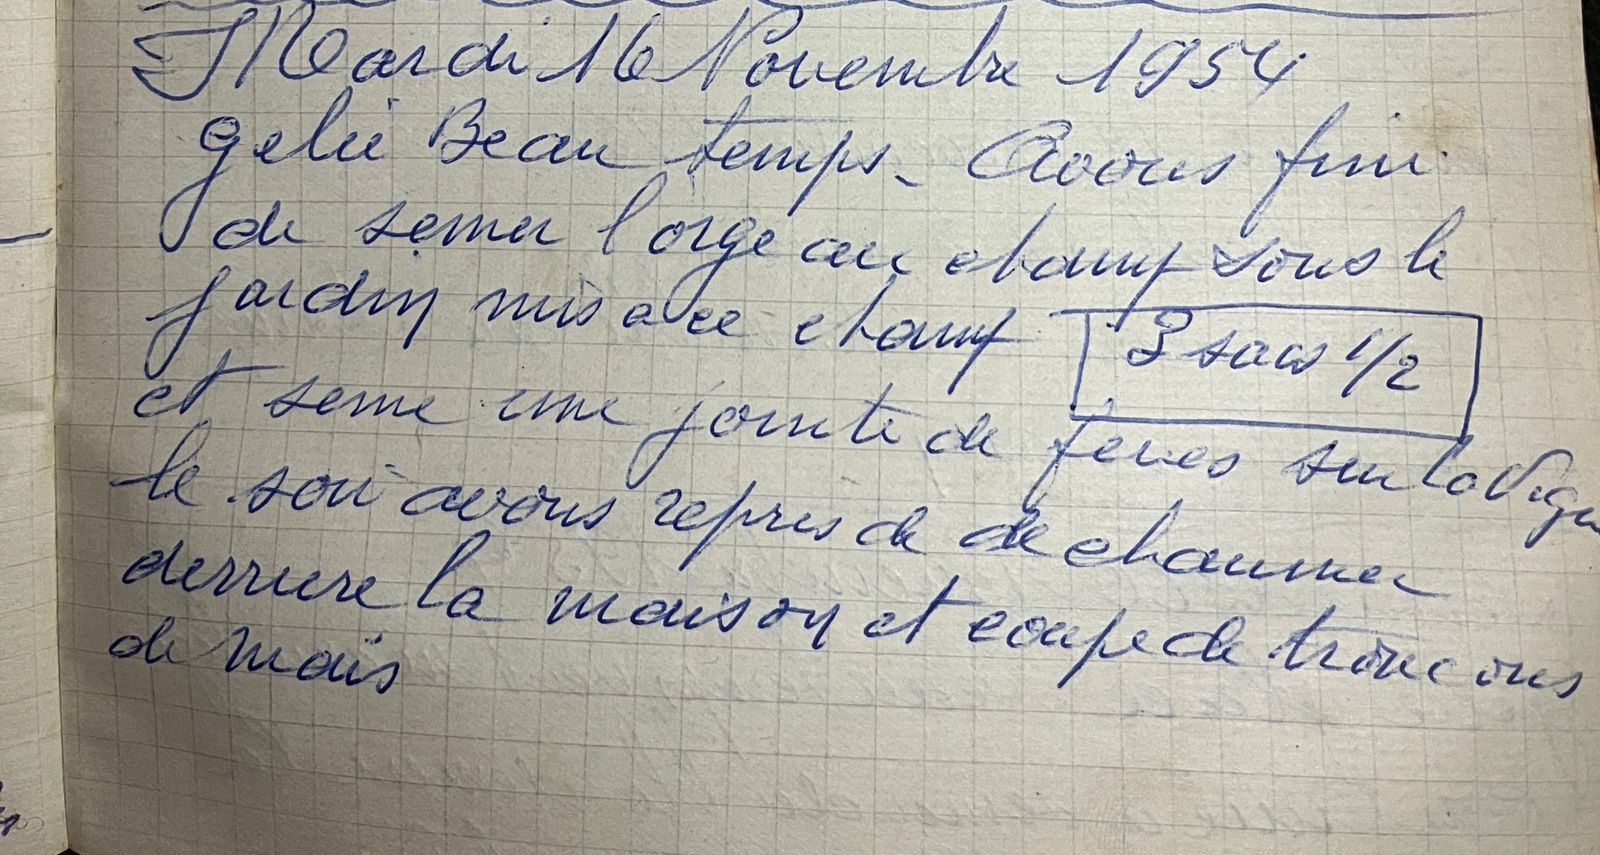 Mardi 16 Novembre 1954
gelée Beau temps. Avons fini
de semer l orge au champ sous le
jardin mis a ce champ 3 sacs 1/2
et seme une jointe de feves sur la vigne
le soir avons repris de dechaumer
derriere la maison et coupe de troncons
de maïs